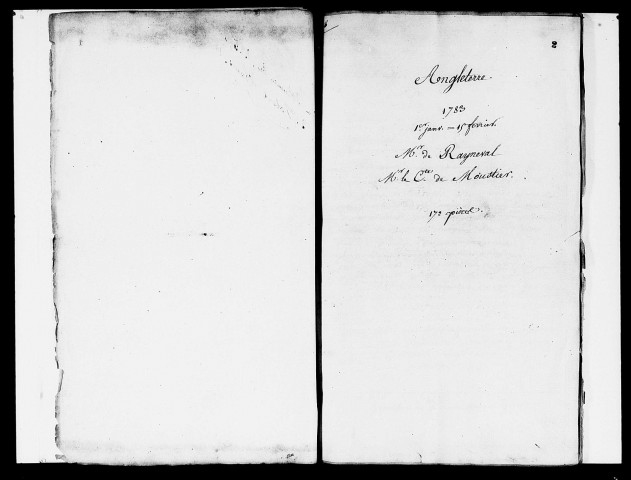 2
Angleterre.
1783
1er janv. — 15 fevrier.
Mr. de Rayneval
Mr. le Cte. de Moustier.
172 pièces.